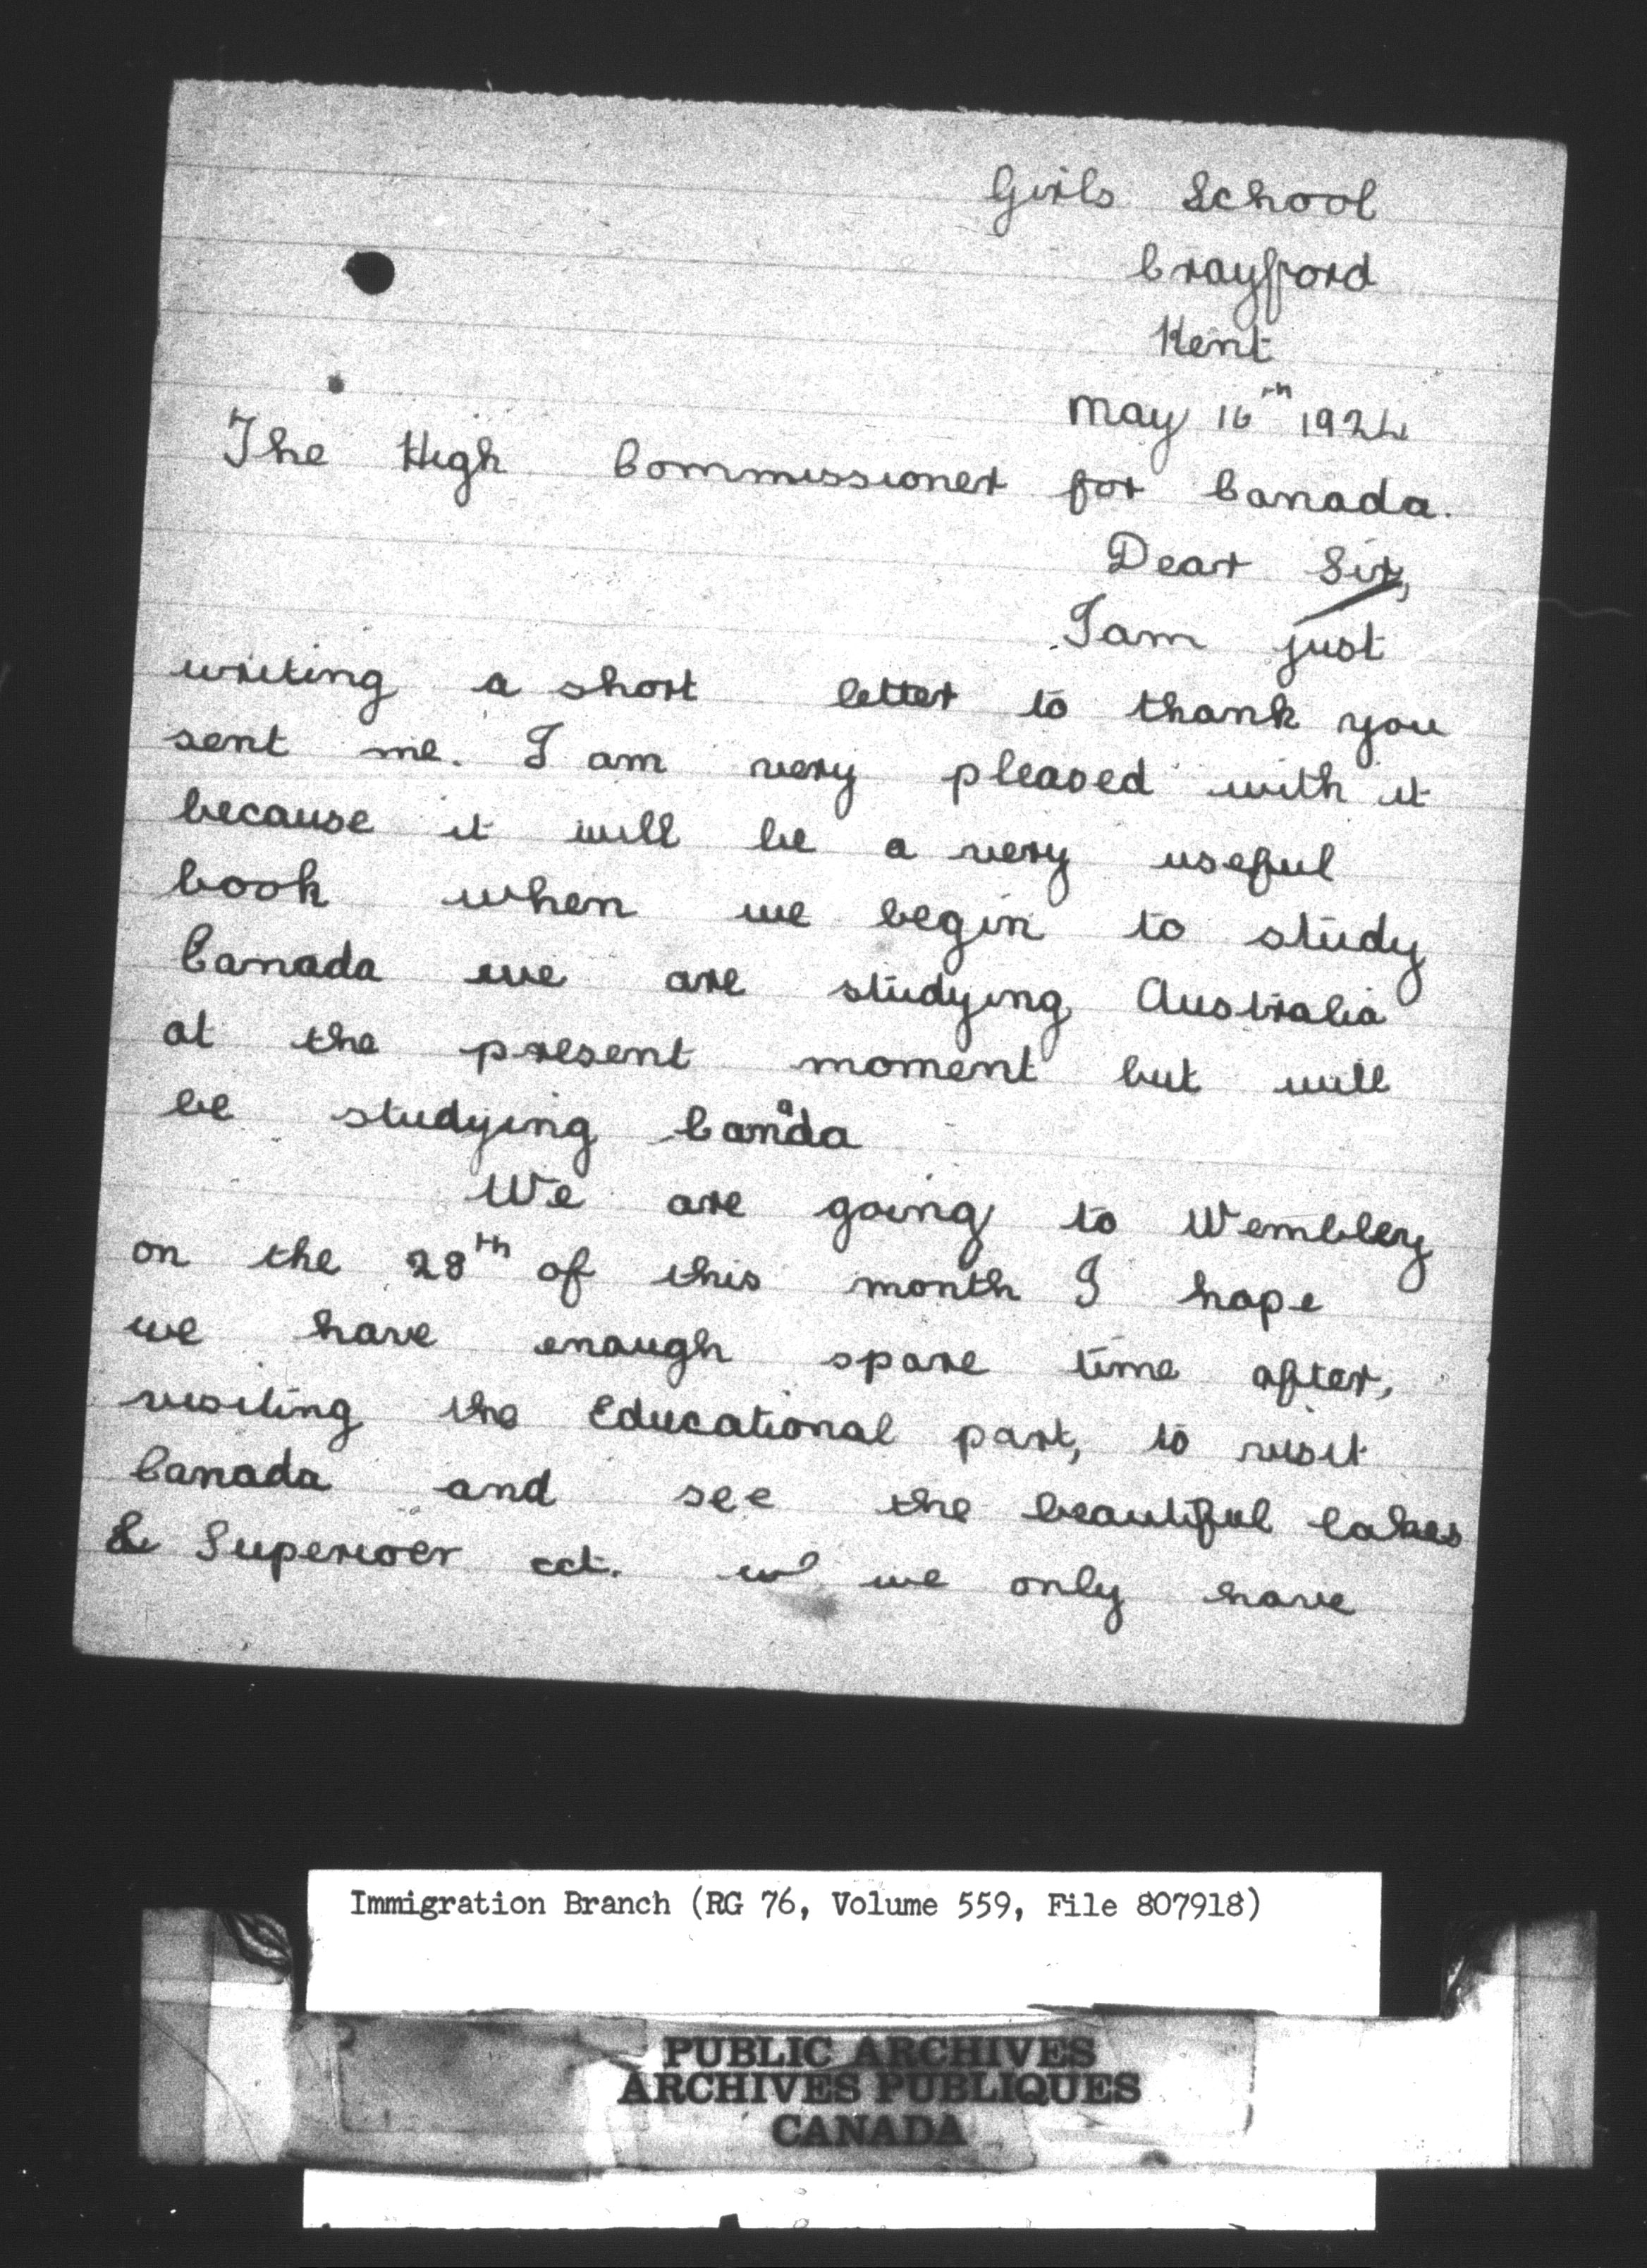 Girls School
Crayford
Kent
May 16th 1924
The High Commissioner for Canada.
Dear Sir,
I am just
writing a short letter to thank you
sent me. I am very pleased with it
because it will be a very useful
book when we begin to study
Canada we are studying Australia
at the present moment but will
be studying Canada
We are going to Wembley
on the 28th of this month I hope
we have enough spare time after,
visiting the Educational part, to visit
Canada and see the beautiful lakes
& Superioer ect. we only have
Immigration Branch (RG 76, Volume 559, File 807918)
PUBLIC ARCHIVES
ARCHIVES PUBLIQUES
CANADA